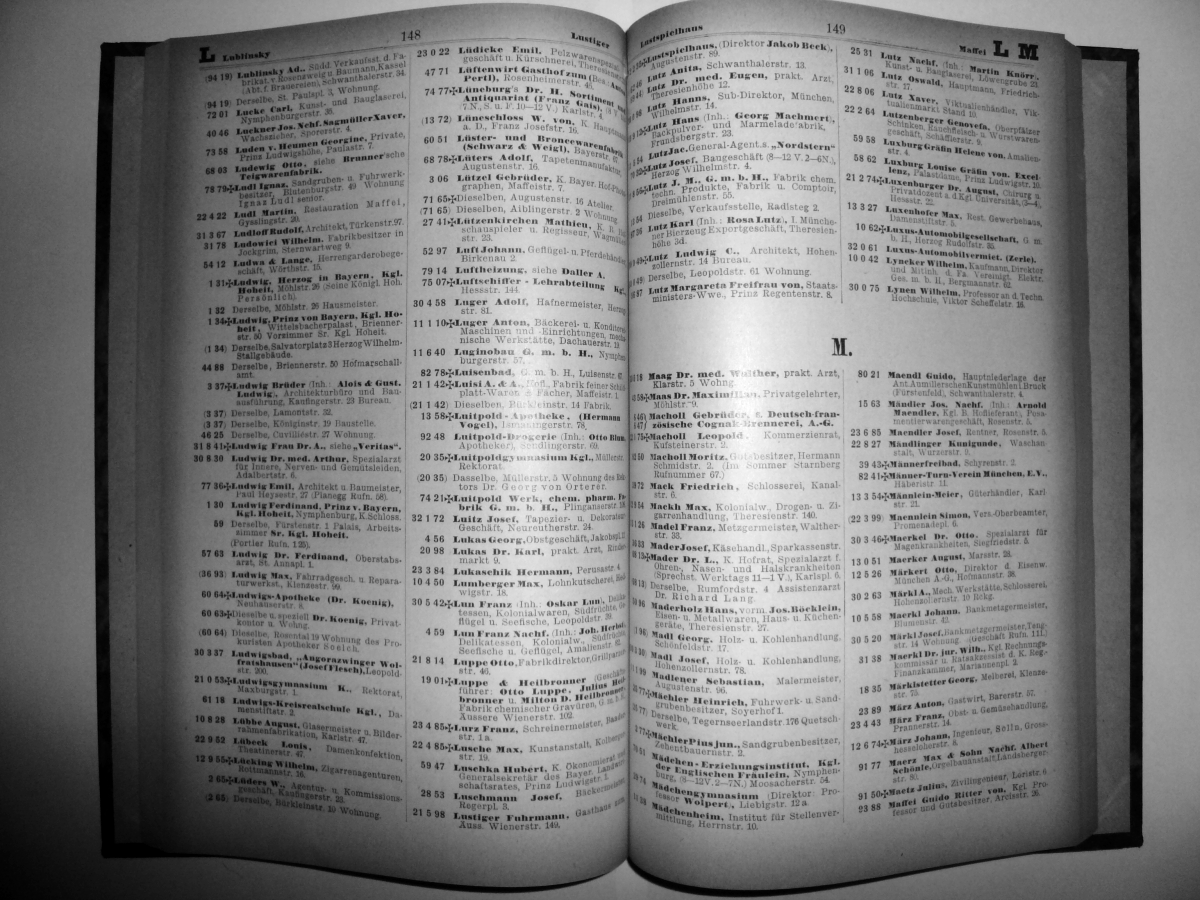 L Lublinsky
148
Lustiger
(94 19) Lublinsky Ad., Südd. Verkaufsst. d. Fa-
brikat. v. Rosenzweig u. Baumann, Kassel
(Abt. f. Brauereien), Schwanthalerstr. 34.
(94 19) Derselbe, St. Paulspl. 3, Wohnung.
72 01 Lucke Carl, Kunst- und Bauglaserei,
Nymphenburgerstr. 36.
40 46 Lockner Jos. Nchf. Sagmüller Xaver,
Wachszieher, Sporerstr. 4.
73 58 Luden v. Heumen Georgine, Private,
Prinz Ludwigshöhe, Paulastr. 7.
68 03 Ludwig Otto, siehe Brunner'sche
Teigwarenfabrik.
78 79 Ludl Ignaz, Sandgruben- u. Fuhrwerk-
besitzer, Blutenburgstr. 49 Wohnung
Ignaz Ludl senior.
22 4 22 Ludl Martin, Restauration Maffei,
Gyßlingstr. 20.
31 3 67 Ludloff Rudolf, Architekt, Türkenstr. 97.
31 78 Ludowici Wilhelm, Fabrikbesitzer in
Jockgrim, Sternwartweg 9.
54 12 Ludwa & Lange, Herrengarderobege-
schäft, Wörthstr. 15.
1 31 Ludwig, Herzog in Bayern, Kgl.
Hoheit, Möhlstr. 26 (Seine Königl. Hoh.
Persönlich).
1 32 Derselbe, Möhlstr. 26 Hausmeister.
1 34 Ludwig, Prinz von Bayern, Kgl. Ho-
heit, Wittelsbacherpalast, Brienner-
str. 50 Vorzimmer Sr. Kgl. Hoheit.
(1 34) Derselbe, Salvatorplatz 3 Herzog Wilhelm-
Stallgebäude.
44 88 Derselbe, Briennerstr. 50 Hofmarschall-
amt.
3 37 Ludwig Brüder (Inh.: Alois & Gust.
Ludwig), Architekturbüro und Bau-
ausführung, Kaufingerstr. 23 Bureau.
(3 37) Derselbe, Lamontstr. 32.
(3 37) Derselbe, Königinstr. 19 Baustelle.
46 25 Derselbe, Cuvilliéstr. 27 Wohnung.
31 8 41 Ludwig Frau Dr. A., siehe „Veritas“.
30 8 30 Ludwig Dr. med. Arthur, Spezialarzt
für Innere, Nerven- und Gemütsleiden,
Adalbertstr. 6.
77 36 Ludwig Emil, Architekt u. Baumeister,
Paul Heysestr. 27 (Planegg Rufn. 58).
1 30 Ludwig Ferdinand, Prinz v. Bayern,
Kgl. Hoheit, Nymphenburg, K. Schloss.
59 Derselbe, Fürstenstr. 1 Palais, Arbeits-
zimmer Sr. Kgl. Hoheit.
(Portier Rufn. 1 25).
57 63 Ludwig Dr. Ferdinand, Oberstabs-
arzt, St. Annapl. 1.
(36 93) Ludwig Max, Fahrradgesch. u. Repara-
turwerkst., Klenzestr. 99.
60 64 Ludwigs-Apotheke (Dr. Koenig),
Neuhauserstr. 8.
60 63 Dieselbe u. speziell Dr. Koenig, Privat-
kontor u. Wohng.
(60 64) Dieselbe, Rosental 19 Wohnung des Pro-
kuristen Apotheker Seelch.
30 3 37 Ludwigsbad, „Angorazwinger Wol-
fratshausen“ (Josef Flesch), Leopold-
str. 200.
21 0 53 Ludwigsgymnasium K., Rektorat,
Maxburgstr. 1.
61 18 Ludwigs-Kreisrealschule Kgl., Da-
menstiftstr. 2.
10 8 28 Lübbe August, Glasermeister u. Bilder-
rahmenfabrikation, Karlstr. 47.
22 9 62 Lübeck Louis, Damenkonfektion,
Theatinerstr. 47.
12 9 55 Lücking Wilhelm, Zigarrenagenturen,
Rottmannstr. 16.
2 65 Lüders W., Agentur- u. Kommissions-
geschäft, Kaufingerstr. 23.
(2 65) Derselbe, Bürkleinstr. 10 Wohnung.
23 0 22 Lüdicke Emil, Pelzwarenspezial-
geschäft u. Kürschnerei, Theresienstr.
47 71 Lüftenwirt Gasthof zum (Bes.: Anton
Pertl), Rosenheimerstr. 46.
74 77 Lüneburg's Dr. H. Sortiment und
Antiquariat (Franz Gais),
7.N., S. u. F. 10—12 V.) Karlstr. 4.
(13 72) Lüneschloss W. von, K. Hauptmann
a. D., Franz Josefstr. 16.
60 51 Lüster- und Broncewarenfabrik
(Schwarz & Weigl), Bayerstr. 67.
68 78 Lüters Adolf, Tapetenmanufaktur,
Augustenstr. 16.
3 06 Lützel Gebrüder, K. Bayer. Hof-Photo-
graphen, Maffeistr. 7.
71 65 Dieselben, Augustenstr. 16 Atelier.
(71 65) Dieselben, Aiblingerstr. 2 Wohnung.
27 41 Lützenkirchen Mathieu, K. B. Hof-
schauspieler u. Regisseur, Wagmüller-
str. 23.
52 97 Luft Johann, Geflügel- u. Pferdehändler,
Birkenau 2.
79 14 Luftheizung, siehe Daller A.
75 07 Luftschiffer-Lehrabteilung Kgl.,
Hessstr. 144.
30 4 58 Luger Adolf, Hafnermeister, Herzog-
str. 81.
11 1 10 Luger Anton, Bäckerei- u. Konditorei-
Maschinen und -Einrichtungen, mecha-
nische Werkstätte, Dachauerstr. 18
11 6 40 Luginobau G. m. b. H., Nymphen-
burgerstr. 57.
82 78 Luisenbad, G. m. b. H., Luisenstr. 67.
21 1 42 Luisi A. & A., Hofl., Fabrik feiner Schild-
platt-Waren & Fächer, Maffeistr. 1.
(21 1 42) Dieselben, Bürkleinstr. 14 Fabrik.
13 58 Luitpold-Apotheke, (Hermann
Vogel), Ismaningerstr. 78.
92 48 Luitpold-Drogerie (Inh.: Otto Blum,
Apotheker), Sendlingerstr. 69.
20 35 Luitpoldgymnasium Kgl., Müllerstr.
Rektorat.
(20 35) Dasselbe, Müllerstr. 5 Wohnung des Rek-
tors Dr. Georg von Orterer.
74 21 Luitpold Werk, chem. pharm. Fa-
brik G. m. b. H., Plinganserstr.
32 1 72 Luitz Josef, Tapezier- u. Dekorateur-
Geschäft, Neureutherstr. 24.
4 56 Lukas Georg, Obstgeschäft, Jakobspl.
20 98 Lukas Dr. Karl, prakt. Arzt, Rinder-
markt 9.
23 3 84 Lukaschik Hermann, Perusastr. 4.
10 4 50 Lumberger Max, Lohnkutscherei, Hed-
wigstr. 18.
30 5 42 Lun Franz (Inh.: Oskar Lun), Delika-
tessen, Kolonialwaren, Südfrüchte, Ge-
flügel u. Seefische, Leopoldstr.
4 59 Lun Franz Nachf. (Inh.: Joh. Herbst),
Delikatessen, Kolonialw., Südfrüchte,
Seefische u. Geflügel, Amalienstr.
21 8 14 Luppe Otto, Fabrikdirektor, Grillparzer-
str. 46.
19 01 Luppe & Heilbronner (Geschäfts-
führer: Otto Luppe, Julius Heil-
bronner u. Milton D. Heilbronner),
Fabrik chemischer Gravüren, G. m. b. H.,
Äussere Wienerstr. 102.
23 4 85 Lurz Franz, Schreinermeister, Baader-
str. 1a.
22 4 85 Lusche Max, Kunstanstalt, Kolberger-
str. 19.
59 47 Luschka Hubert, K. Ökonomierat und
Generalsekretär des Bayer. Landwirt-
schaftsrates, Prinz Ludwigstr. 1.
28 53 Luschmann Josef, Bäckermeister,
Regerpl. 3.
21 5 98 Lustiger Fuhrmann, Gasthaus zum,
Äuss. Wienerstr. 149.
Lustspielhaus
149
Maffei L M
Lustspielhaus, (Direktor Jakob Beck),
Augustenstr. 89.
Lutz Anita, Schwanthalerstr. 13.
Lutz Dr. med. Eugen, prakt. Arzt,
Theresienhöhe 12.
Lutz Hanns, Sub-Direktor, München,
Wilhelmstr. 14.
Lutz Hans (Inh.: Georg Machmert),
Backpulver- und Marmeladefabrik,
Frundsbergstr. 23.
Lutz Jac., General-Agent. s. „Nordstern“
Lutz Josef, Baugeschäft (8—12 V. 2—6 N.),
Herzog Wilhelmstr. 4.
Lutz J. M., G. m. b. H., Fabrik chem.
techn. Produkte, Fabrik u. Comptoir,
Dreimühlenstr. 55.
Dieselbe, Verkaufsstelle, Radlsteg 2.
Lutz Karl (Inh.: Rosa Lutz), I. Münche-
ner Bierzeug Exportgeschäft, Theresien-
höhe 3d.
Lutz Ludwig C., Architekt, Hohen-
zollernstr. 14 Bureau.
Derselbe, Leopoldstr. 61 Wohnung.
Lutz Margareta Freifrau von, Staats-
ministers-Wwe., Prinz Regentenstr. 8.
25 31 Lutz Nachf. (Inh.: Martin Knörr),
Kunst- u. Bauglaserei, Löwengrube 21.
31 1 06 Lutz Oswald, Hauptmann, Friedrich-
str. 17.
22 8 06 Lutz Xaver, Viktualienhändler, Vik-
tualienmarkt Stand 10.
22 2 64 Lutzenberger Genovefa, Oberpfälzer
Schinken, Rauchfleisch- u. Wurstwaren-
geschäft, Schäfflerstr. 9.
59 58 Luxburg Gräfin Helene von, Amalien-
str.
58 62 Luxburg Louise Gräfin von, Excel-
lenz, Palastdame, Prinz Ludwigstr. 10.
21 2 74 Luxenburger Dr. August, Chirurg u.
Privatdozent a. d. Kgl. Universität, (3—4),
Hessstr. 22.
13 3 27 Luxenhofer Max, Rest. Gewerbehaus,
Damenstiftstr. 5.
10 62 Luxus-Automobilgesellschaft, G. m.
b. H., Herzog Rudolfstr. 35.
32 0 61 Luxus-Automobilvermiet. (Zerle).
10 0 42 Lyncker Wilhelm, Kaufmann, Direktor
und Mitinh. d. Fa. Vereinigt. Elektr.
Ges. m. b. H., Bergmannstr. 62.
30 0 75 Lynen Wilhelm, Professor an d. Techn.
Hochschule, Viktor Scheffelstr. 16.
M.
Maag Dr. med. Walther, prakt. Arzt,
Klarstr. 5 Wohng.
Maas Dr. Maximilian, Privatgelehrter,
Möhlstr. 9.
Macholl Gebrüder, s. Deutsch-fran-
zösische Cognak-Brennerei, A.-G.
Macholl Leopold, Kommerzienrat,
Kufsteinerstr. 2.
Macholl Moritz, Gutsbesitzer, Hermann
Schmidstr. 2. (Im Sommer Starnberg
Rufnummer 67.)
Mack Friedrich, Schlosserei, Kanal-
str. 6.
Mackh Max, Kolonialw., Drogen- u. Zi-
garrenhandlung, Theresienstr. 140.
Madel Franz, Metzgermeister, Walther-
str. 33.
Mader Josef, Käsehandl., Sparkassenstr.
Mader Dr. L., K. Hofrat, Spezialarzt f.
Ohren-, Nasen- und Halskrankheiten
(Sprechst. Werktags 11—1 V.), Karlspl. 6.
Derselbe, Rumfordstr. 4 Assistenzarzt
Dr. Richard Lang.
Maderholz Hans, vorm. Jos. Böcklein,
Eisen- u. Metallwaren, Haus- u. Küchen-
geräte, Theresienstr. 27.
Madl Georg, Holz- u. Kohlenhandlung,
Schönfeldstr. 17.
Madl Josef, Holz- u. Kohlenhandlung,
Hohenzollernstr. 78.
Madlener Sebastian, Malermeister,
Augustenstr. 96.
Mächler Heinrich, Fuhrwerk- u. Sand-
grubenbesitzer, Soyerhof 1.
Derselbe, Tegernseerlandstr. 176 Quetsch-
werk.
Mächler Pius jun., Sandgrubenbesitzer,
Zehentbauernstr. 2.
Mädchen-Erziehungsinstitut, Kgl.
der Englischen Fräulein, Nymphen-
burg, (8—12 V. 2—7 N.) Moosacherstr. 54.
Mädchengymnasium (Direktor: Pro-
fessor Wolpert), Liebigstr. 12a.
Mädchenheim, Institut für Stellenver-
mittlung, Herrnstr. 10.
80 21 Maendl Guido, Hauptniederlage der
Ant. Anmillerschen Kunstmühlen i. Bruck
(Fürstenfeld), Schwanthalerstr. 4.
15 63 Mändler Jos. Nachf. (Inh.: Arnold
Maendler, Kgl. B. Hoflieferant), Posa-
mentierwarengeschäft, Rosenstr. 5.
23 6 85 Maendler Josef, Rentner, Rosenstr. 5.
22 8 27 Mändlinger Kunigunde, Waschan-
stalt, Wurzerstr. 9.
39 43 Männerfreibad, Schyrenstr. 2.
82 41 Männer-Turn-Verein München, E. V.,
Häberlstr. 11.
13 3 54 Männlein-Meier, Güterhändler, Karl-
str. 21.
(22 3 99) Maennlein Simon, Vers.-Oberbeamter,
Promenadepl. 6.
30 3 46 Maerkel Dr. Otto, Spezialarzt für
Magenkrankheiten, Siegfriedstr. 5.
13 0 51 Maerker August, Marsstr. 28.
12 5 26 Märkert Otto, Direktor d. Eisenw.
München A.-G., Hofmannstr. 38.
30 2 63 Märkl A., Mech. Werkstätte, Schlosserei,
Hohenzollernstr. 19 Rckg.
10 5 58 Maerkl Johann, Bankmetzgermeister,
Blumenstr. 42.
30 5 20 Märkl Josef, Bankmetzgermeister, Teng-
str. 14 Wohnung. (Geschäft Rufn. 111.)
31 38 Maerkl Dr. jur. Wilh., Kgl. Rechnungs-
kommissär u. Rataskzessist d. K. Reg.,
Finanzkammer, Mariannenpl. 2.
18 35 Märklstetter Georg, Melberei, Klenze-
str. 75.
23 89 März Anton, Gastwirt, Barerstr. 57.
23 4 43 März Franz, Obst- u. Gemüsehandlung,
Prannerstr. 14.
12 6 74 März Johann, Ingenieur, Solln, Gross-
hesseloherstr. 8.
91 77 Maerz Max & Sohn Nachf. Albert
Schönle, Orgelbauanstalt, Landsberger-
str. 80.
91 50 Maetz Julius, Zivilingenieur, Loristr. 6.
93 88 Maffei Guido Ritter von, Kgl. Pro-
fessor und Gutsbesitzer, Arcisstr. 26.